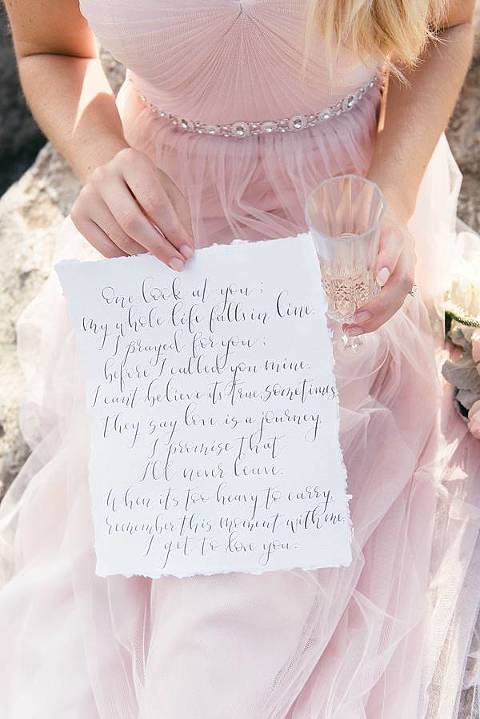 One look at you;
my whole life falls in line.
I prayed for you;
before I called you mine.
I can't believe its true, sometimes.
They say love is a journey,
I promise that
I'll never leave.
When its too heavy to carry,
remember this moment with me.
I get to love you.